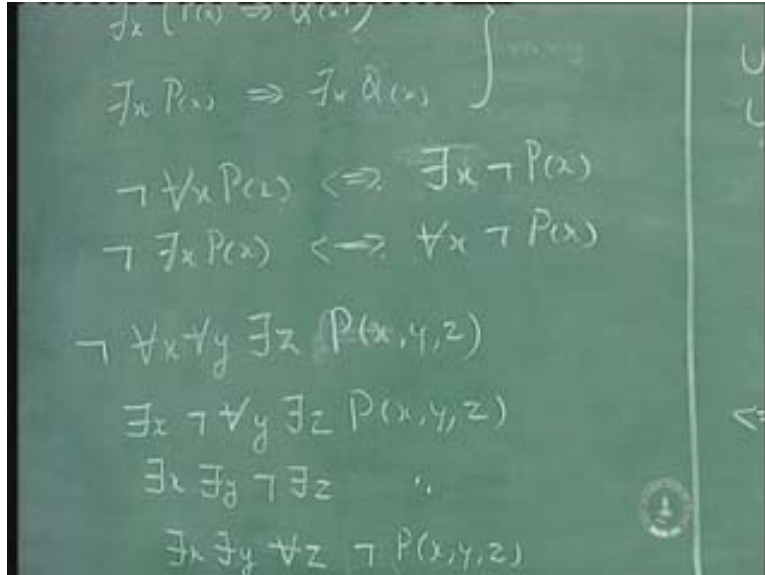 ∃x (P(x) ⇒ Q(x))
∃x P(x) ⇒ ∃x Q(x)
¬ ∀x P(x) <=> ∃x ¬ P(x)
¬ ∃x P(x) <=> ∀x ¬ P(x)
¬ ∀x ∀y ∃z P(x, y, z)
∃x ¬ ∀y ∃z P(x, y, z)
∃x ∃y ¬ ∃z "
∃x ∃y ∀z ¬ P(x, y, z)
U
U
<=